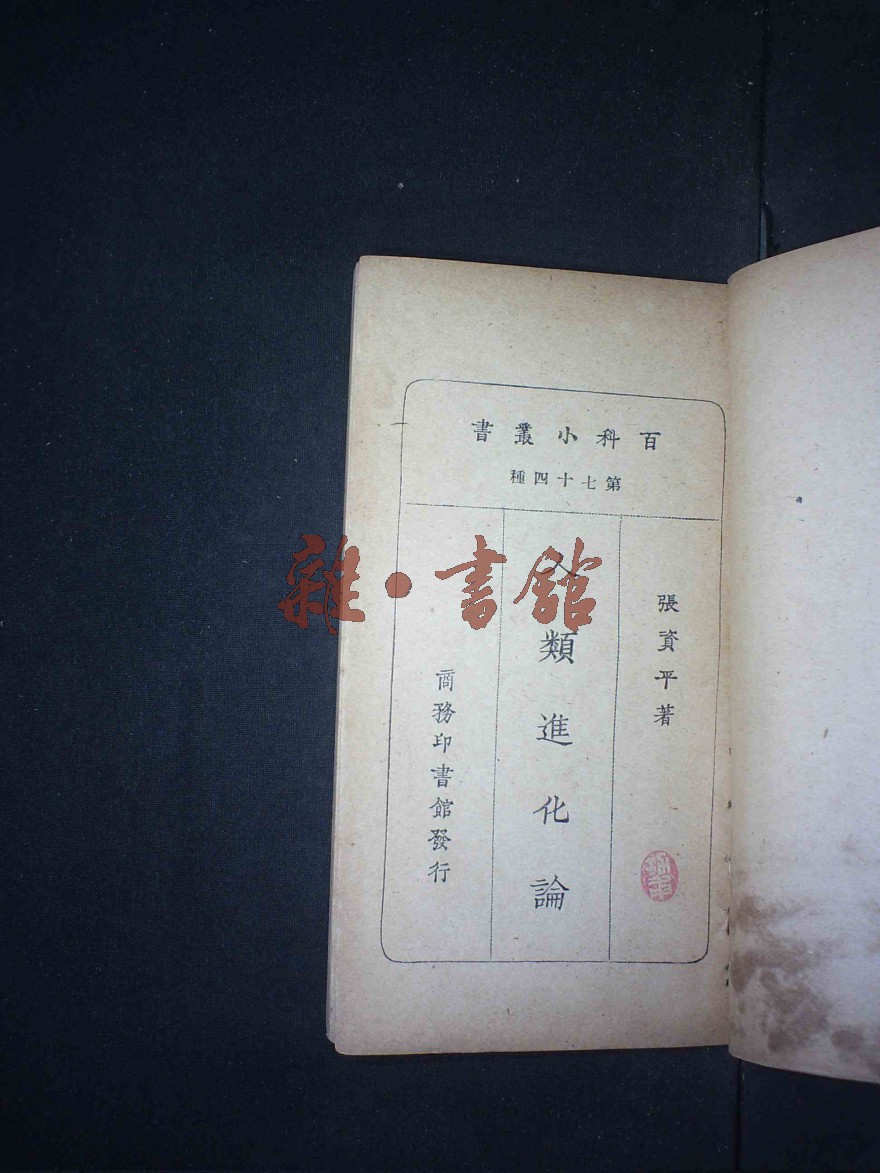 百科小叢書
第七十四種
張資平著
人類進化論
商務印書館發行
雜·書館